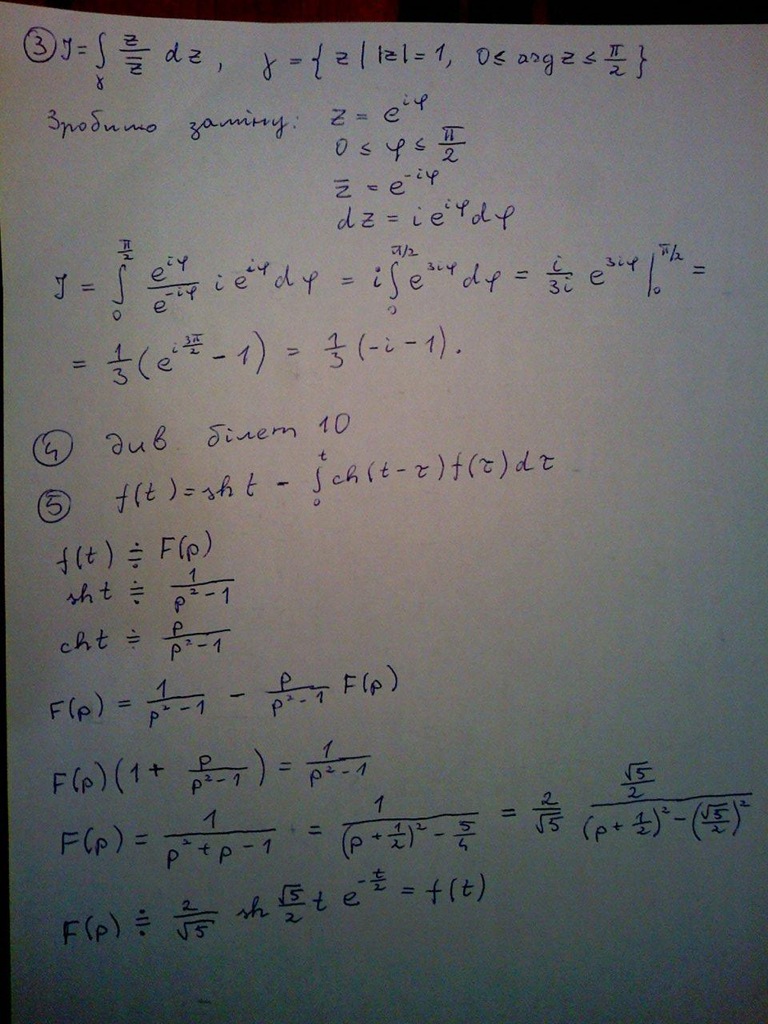 ③ J = ∫_γ z/z̄ dz, γ = { z | |z| = 1, 0 ≤ arg z ≤ π/2 }
Зробимо заміну: z = e^{iφ}
0 ≤ φ ≤ π/2
z̄ = e^{-iφ}
dz = i e^{iφ} dφ
J = ∫_0^{π/2} e^{iφ}/e^{-iφ} i e^{iφ} dφ = i ∫_0^{π/2} e^{3iφ} dφ = i/3i e^{3iφ} |_0^{π/2} =
= 1/3 (e^{i 3π/2} - 1) = 1/3 (-i - 1).
④ див білет 10
⑤ f(t) = sh t - ∫_0^t ch(t-τ) f(τ) dτ
f(t) ≑ F(p)
sh t ≑ 1/(p² - 1)
ch t ≑ p/(p² - 1)
F(p) = 1/(p² - 1) - p/(p² - 1) F(p)
F(p) (1 + p/(p² - 1)) = 1/(p² - 1)
F(p) = 1/(p² + p - 1) = 1/((p + 1/2)² - 5/4) = 2/√5 (√5/2)/((p + 1/2)² - (√5/2)²)
F(p) ≑ 2/√5 sh √5/2 t e^{-t/2} = f(t)